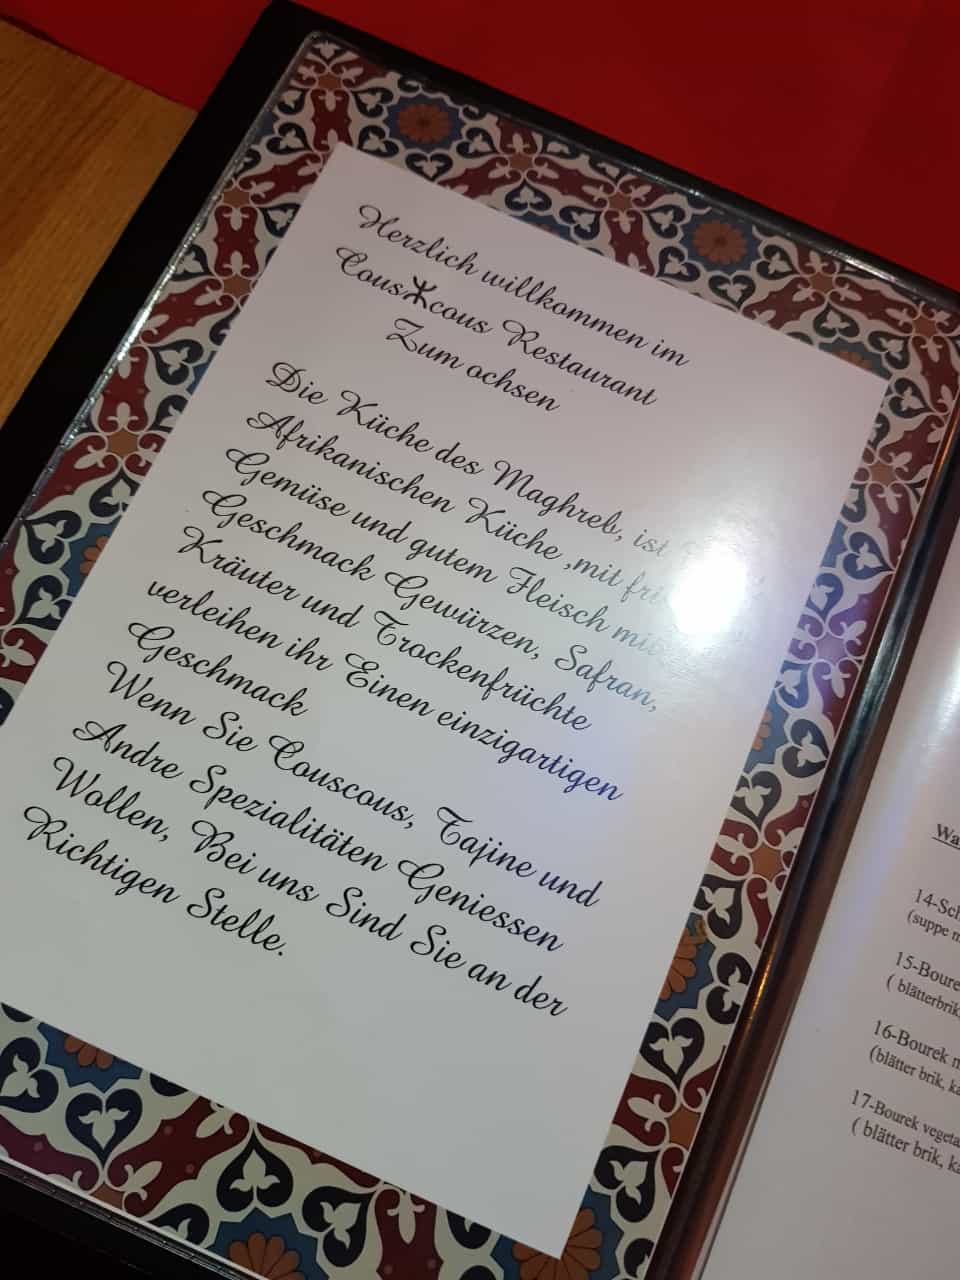 Herzlich willkommen im
Cousⵣcous Restaurant
Zum ochsen
Die Küche des Maghreb, ist
Afrikanischen Küche ,mit
Gemüse und gutem Fleisch mit
Geschmack Gewürzen, Safran,
Kräuter und Trockenfrüchte
verleihen ihr Einen einzigartigen
Geschmack
Wenn Sie Couscous, Tajine und
Andre Spezialitäten Geniessen
Wollen, Bei uns Sind Sie an der
Richtigen Stelle.
14-
(suppe
15-
( blätterbrik,
16-Bourek
(blätter brik,
17-Bourek
( blätter brik,